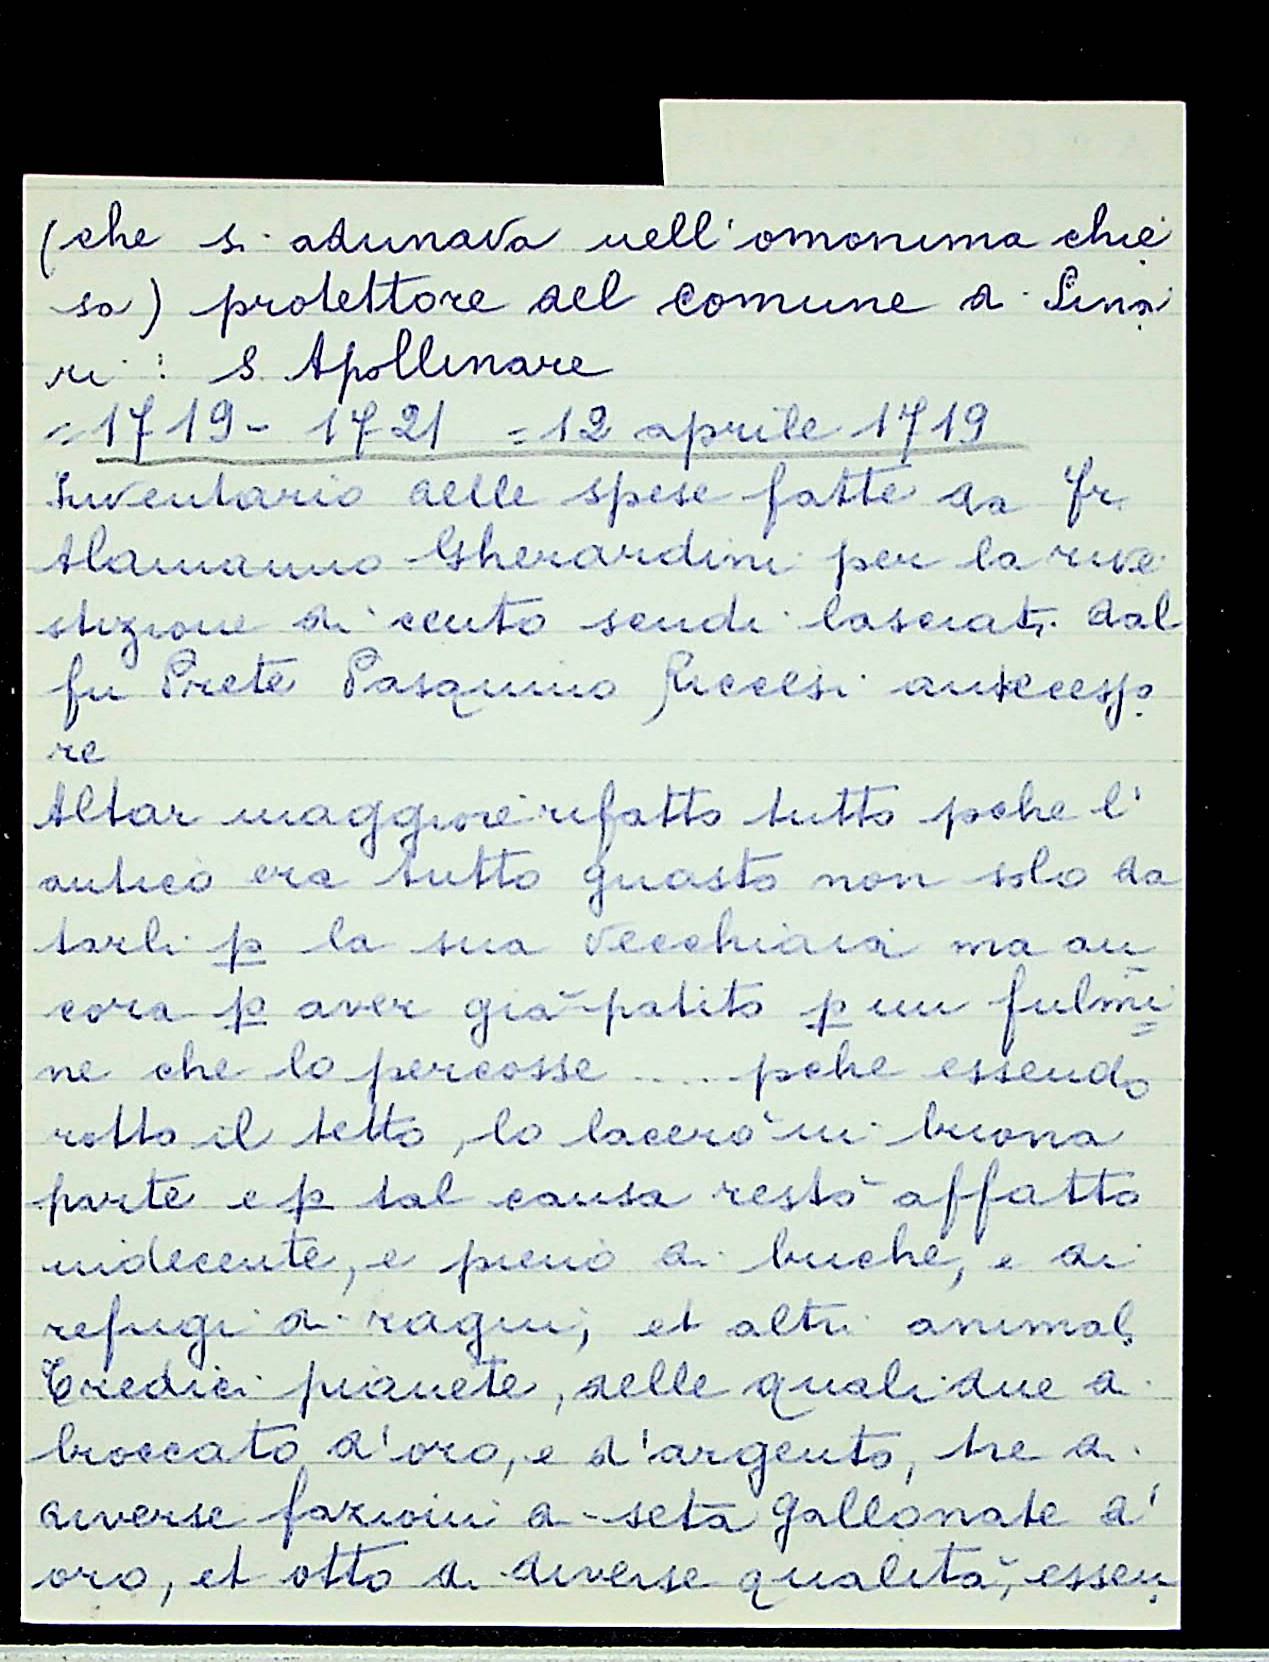 (che si adunava nell'omonima chie
sa) protettore del comune di Lina
ri: S Apollinare
=1719- 1721 =12 aprile 1719
Inventario delle spese fatte da Fr.
Alamanno Gherardini per la rive
stizione di cento scudi lasciati dal
fu Prete Pasquino Riccesi antecesso
re
Altar maggiore rifatto tutto pche l'
antico era tutto guasto non solo da
tarli p la sua vecchiaia ma an
cora p aver già patito p un fulmi
ne che lo percosse .... pche essendo
rotto il tetto, lo lacerò in buona
parte e p tal causa restò affatto
indecente, e pieno di buche, e di
refugi di ragni, et altri animali
Tredici pianete, delle quali due di
broccato d'oro, e d'argento, tre di
diverse fazioni di seta gallonate d'
oro, et otto di diverse qualità, essen